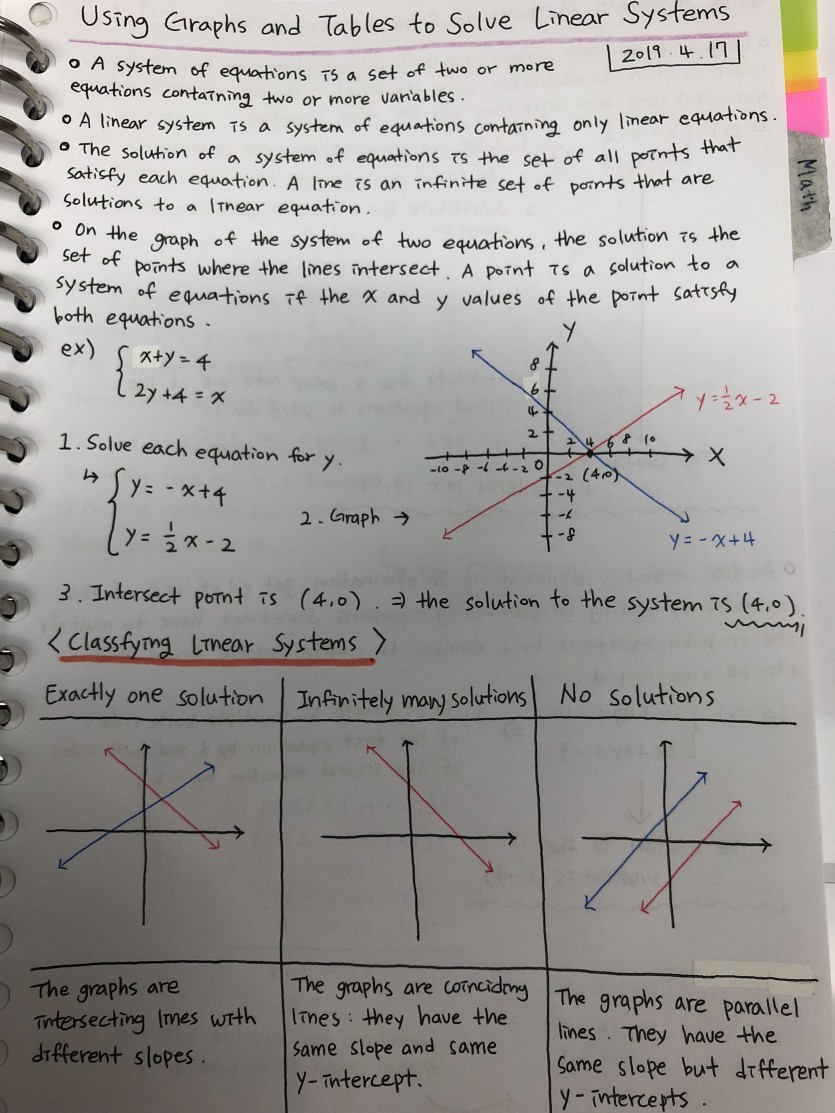 Using Graphs and Tables to Solve Linear Systems
2019. 4. 17
Math
o A system of equations is a set of two or more
equations containing two or more variables.
o A linear system is a system of equations containing only linear equations.
o The solution of a system of equations is the set of all points that
satisfy each equation. A line is an infinite set of points that are
solutions to a linear equation.
o On the graph of the system of two equations, the solution is the
set of points where the lines intersect. A point is a solution to a
system of equations if the x and y values of the point satisfy
both equations.
ex) { x+y = 4
2y+4 = x
1. Solve each equation for y.
↳ { y = -x+4
y = 1/2 x - 2
2. Graph →
Y
8
6
4
2
-10 -8 -6 -4 -2 0 2 4 6 8 10 X
-2 (4,0)
-4
-6
-8
y = 1/2 x - 2
y = -x+4
3. Intersect point is (4,0). ⇒ the solution to the system is (4,0).
< Classfying Linear Systems >
Exactly one solution
Infinitely many solutions
No solutions
The graphs are
intersecting lines with
different slopes.
The graphs are coinciding
lines: they have the
same slope and same
y-intercept.
The graphs are parallel
lines. They have the
same slope but different
y-intercepts.